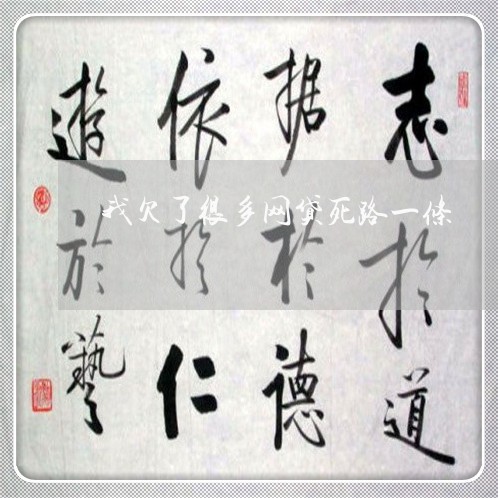 志於道
据於德
依於仁
遊於藝
我欠了很多网贷死路一條